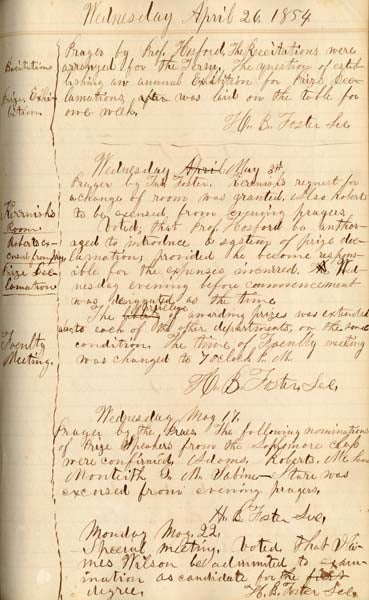 Wednesday April 26. 1854
Recitations
Prize Exhi-
bition
Prayer by Prof. Hosford. The Recitations were
arranged for the Term. The question of estab-
lishing an annual Exibition for Prize Dec-
lamations, was laid on the table for
one week.
H. B. Foster Sec.
Wednesday April May 3d.
Kerruish's
Room
Roberts ex-
cused from pray
Prize Dec-
lamation
Faculty
Meeting.
Prayer by Tut. Foster. Kerruish's request for
a change of room was granted. Also Roberts
to be excused from evening prayers.
Voted, that Prof. Hosford be author-
aged to introduce a system of prize dec-
lamation, provided he become respons-
ible for the expenses incurred. Wed-
nesday evening before commencement
was designated as the time.
The privilege of awarding prizes was extended
also to each of the other departments, on the same
condition. The time of Faculty meeting
was changed to 7 oclock P. M.
H. B. Foster, Sec.
Wednesday May 17.
Prayer by the Pres. The following nominations
of Prize Speakers from the Sophomore class
were confirmed, Adams, Roberts,
Monteith &. M. Vabine Stare was
excused from evening prayers.
H. B. Foster Sec,
Monday May. 22.
Special meeting. Voted that
mes Wilson be admitted to exam-
ination as candidate for the first
degree.
H. B. Foster Sec